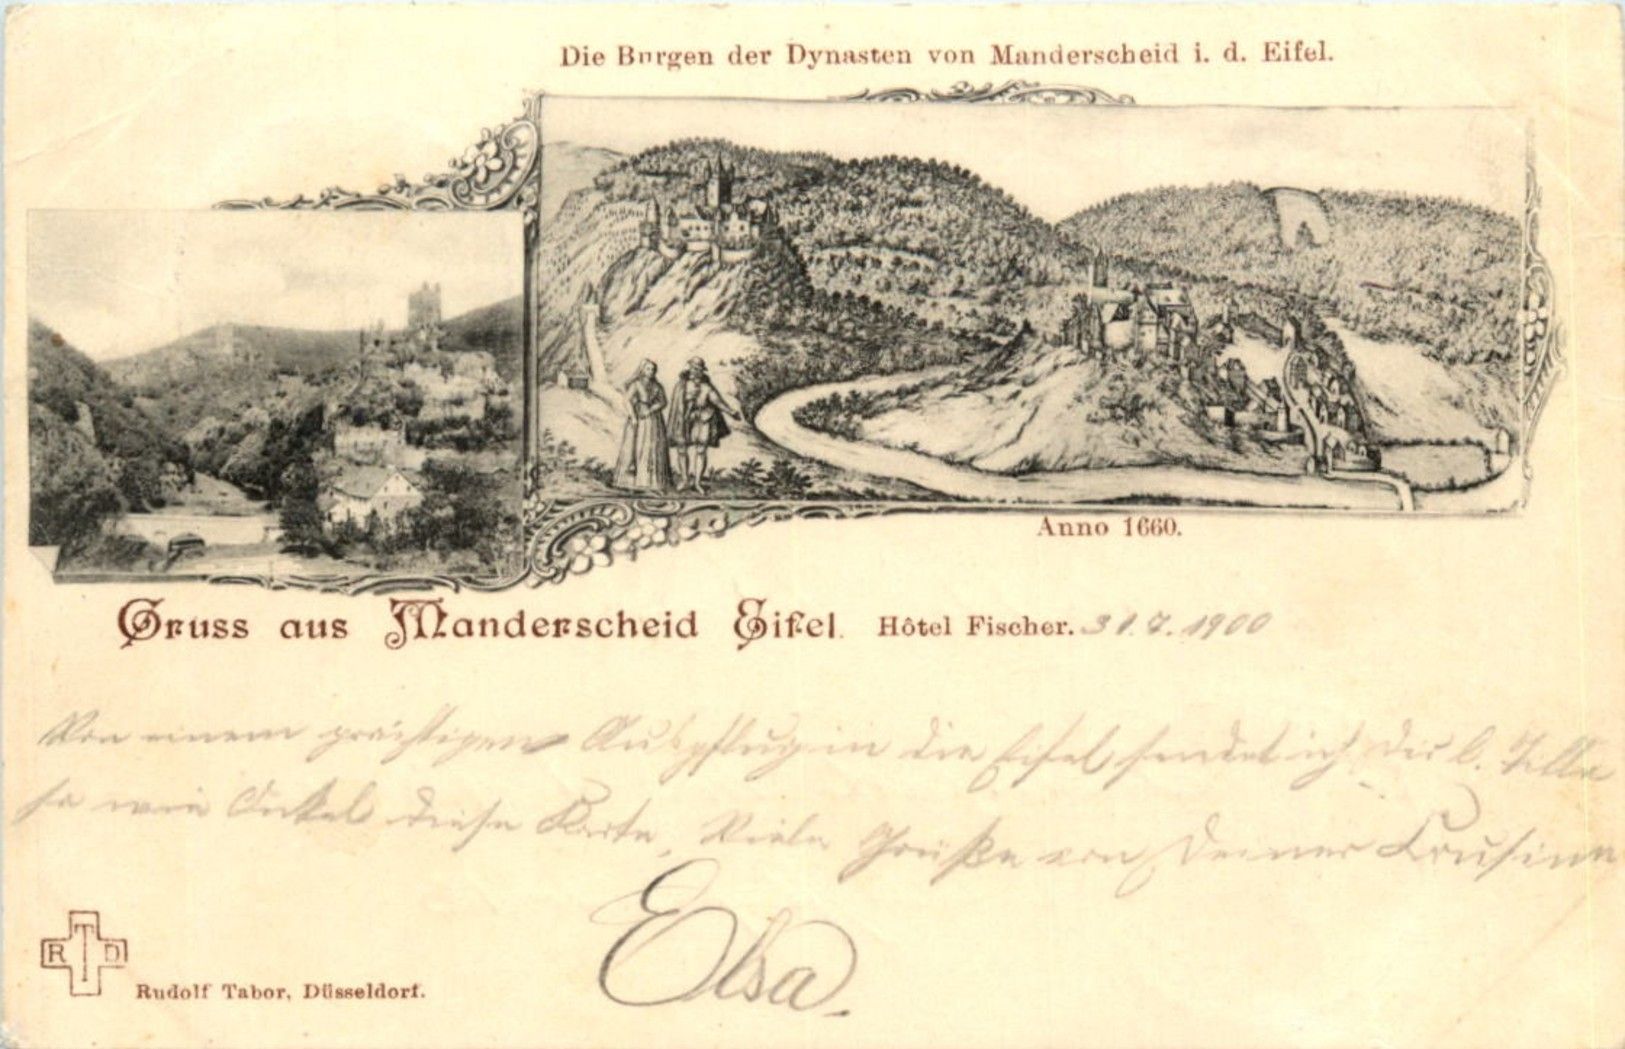 Die Burgen der Dynasten von Manderscheid i. d. Eifel.
Anno 1660.
Gruss aus Manderscheid Eifel. Hôtel Fischer. 31.7.1900
Von einem prächtigen Ausflug in die Eifel sendet ich Dir l. Tilla
so wie Onkel diese Karte, Viele Grüße von Deiner Cousine
Elsa.
R T D
Rudolf Tabor, Düsseldorf.